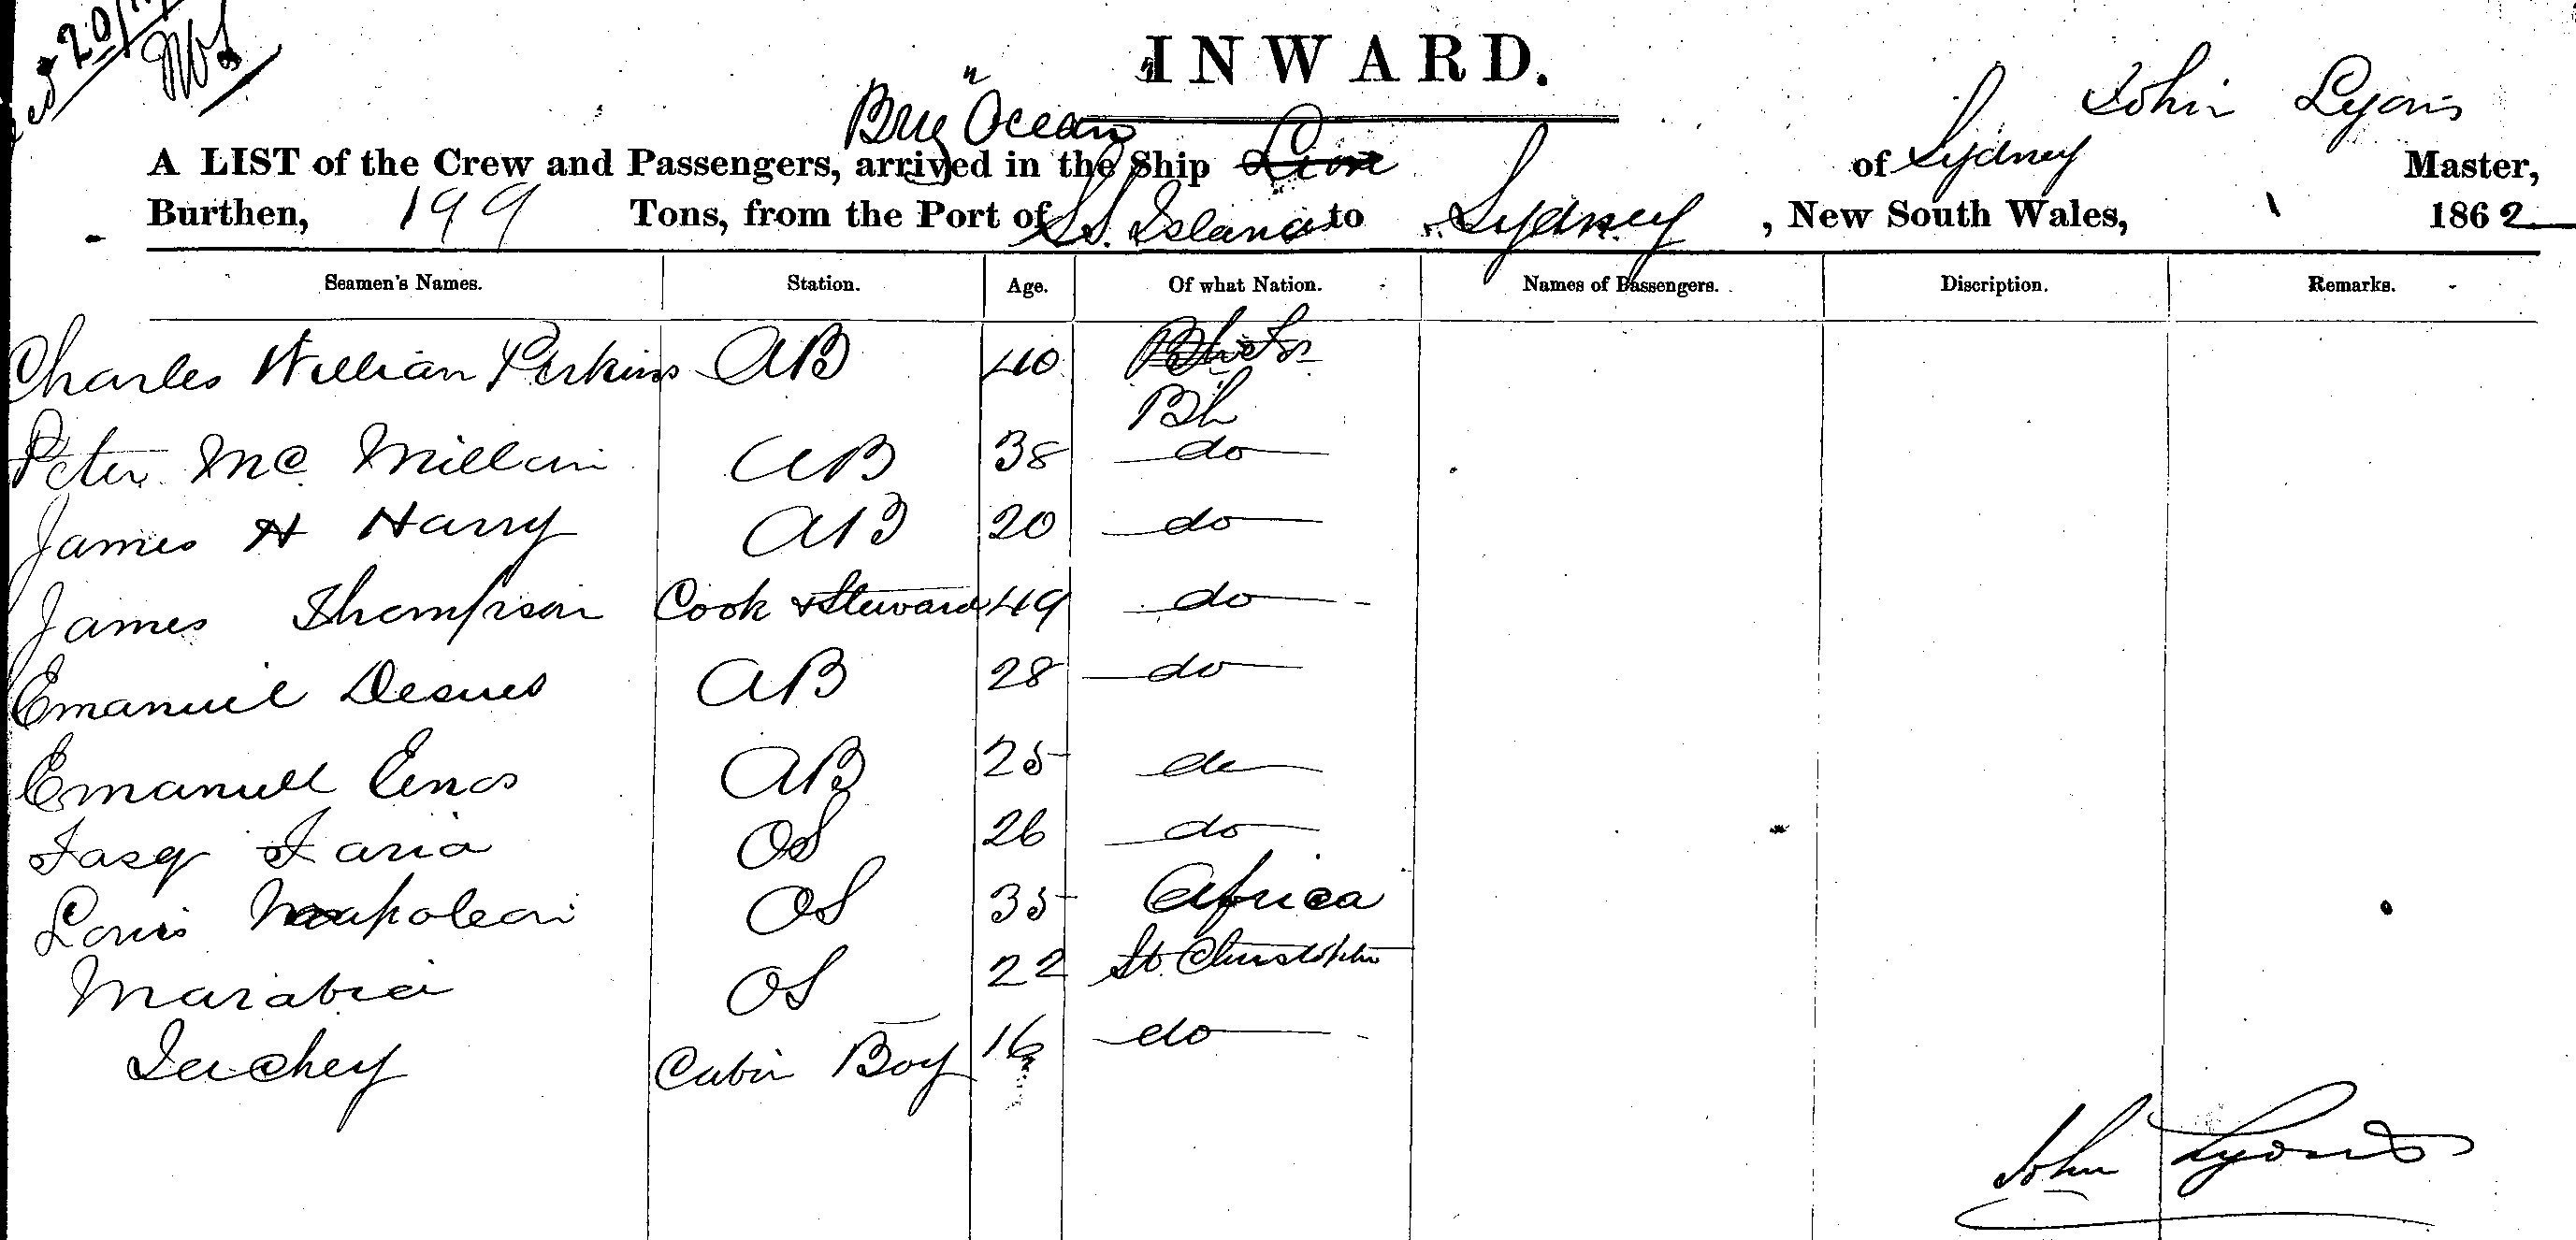 20/
INWARD.
Brig "Ocean" John Lyons
A LIST of the Crew and Passengers, arrived in the Ship of Sydney Master,
Burthen, 199 Tons, from the Port of S.S. Island to Sydney, New South Wales, 1862
Seamen's Names. Station. Age. Of what Nation. Names of Passengers. Discription. Remarks.
Charles William Perkins AB 40
Bh
Peter Mc Millan AB 38 do
James H Harry AB 20 do
James Thompson Cook & Steward 49 do
Emanuel AB 28 do
Emanuel Enos AB 25 do
Faria OS 26 do
Louis Napoleon OS 35 Africa
Marabia OS 22 St. Christopher
Cabin Boy 16 do
John Lyons